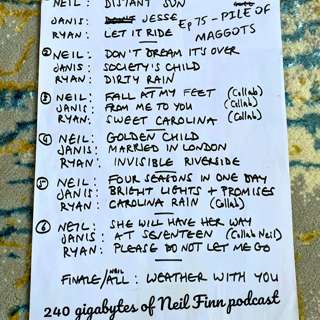 NEIL: DISTANT SUN
JANIS: JESSE
Ep 75 - PILE OF MAGGOTS
RYAN: LET IT RIDE
② NEIL: DON'T DREAM IT'S OVER
JANIS: SOCIETY'S CHILD
RYAN: DIRTY RAIN
③ NEIL: FALL AT MY FEET (Collab)
JANIS: FROM ME TO YOU (Collab)
RYAN: SWEET CAROLINA (Collab)
④ NEIL: GOLDEN CHILD
JANIS: MARRIED IN LONDON
RYAN: INVISIBLE RIVERSIDE
⑤ NEIL: FOUR SEASONS IN ONE DAY
JANIS: BRIGHT LIGHTS + PROMISES
RYAN: CAROLINA RAIN (Collab)
⑥ NEIL: SHE WILL HAVE HER WAY
JANIS: AT SEVENTEEN (Collab Neil)
RYAN: PLEASE DO NOT LET ME GO
FINALE/NEIL ALL: WEATHER WITH YOU
240 gigabytes of Neil Finn podcast